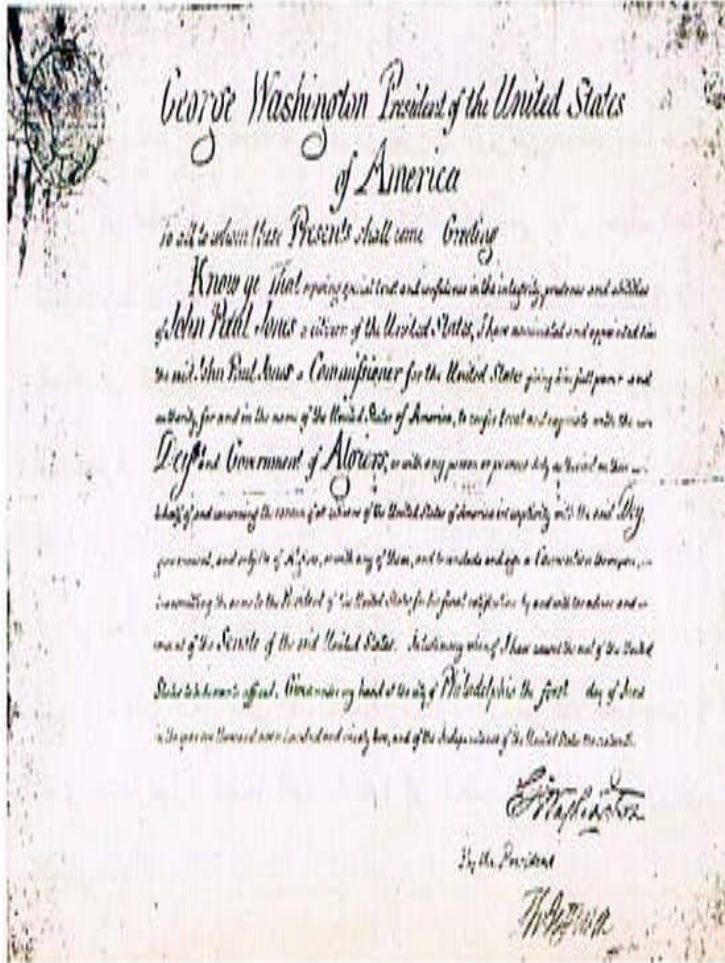 George Washington President of the United States
of America
To all to whom these Presents shall come Greeting
Know ye That reposing special trust and confidence in the integrity prudence and abilities
of John Paul Jones a citizen of the United States, I have nominated and appointed him
the said John Paul Jones a Commissioner for the United States giving him full power and
authority, for and in the name of the United States of America, to confer treat and negotiate with the
Dey and Government of Algiers, or with any person or persons duly authorized on their
behalf, of and concerning the ransom of all citizens of the United States of America in captivity with the said Dey,
government, and subjects of Algiers, or with any of them, and to conclude and sign a Convention thereupon,
transmitting the same to the President of the United States for his final ratification by and with the advice and
of the Senate of the said United States. In testimony whereof I have caused the seal of the United
States to be hereunto affixed. Given under my hand at the city of Philadelphia the first day of June
in the year one thousand seven hundred and ninety two, and of the Independence of the United States the sixteenth.
G Washington
By the President
Th Jefferson